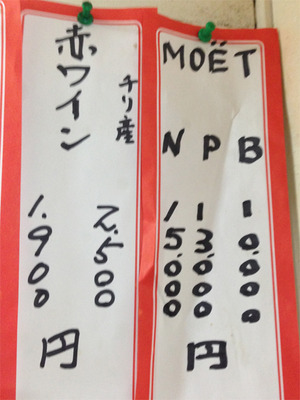 赤ワイン
チリ産
2.500
1.900
円
MOËT
N P B
15.000
13.000
10.000
円